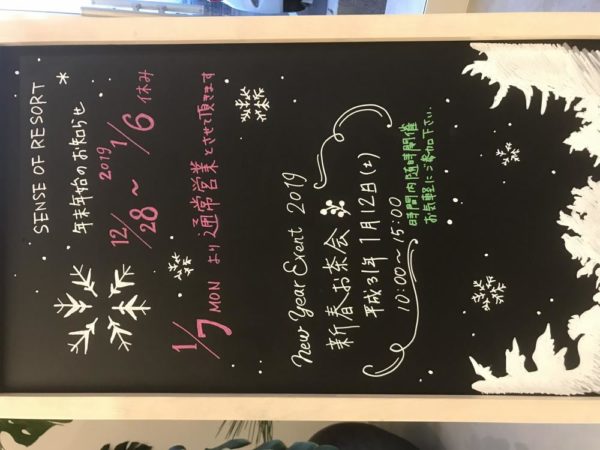 SENSE OF RESORT
年末年始のお知らせ
12/28〜2019 1/6 休み
1/7 MON より通常営業とさせて頂きます
New Year Event 2019
新春お茶会
平成31年1月12日(土)
10:00〜15:00
時間内随時開催
お気軽にご参加下さい